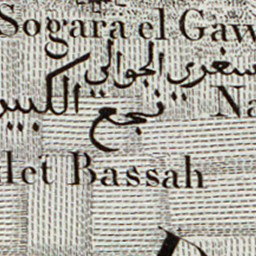 Sogara el Gaw
سغري الجوالي
نجع الكبير
Na
let Bassah